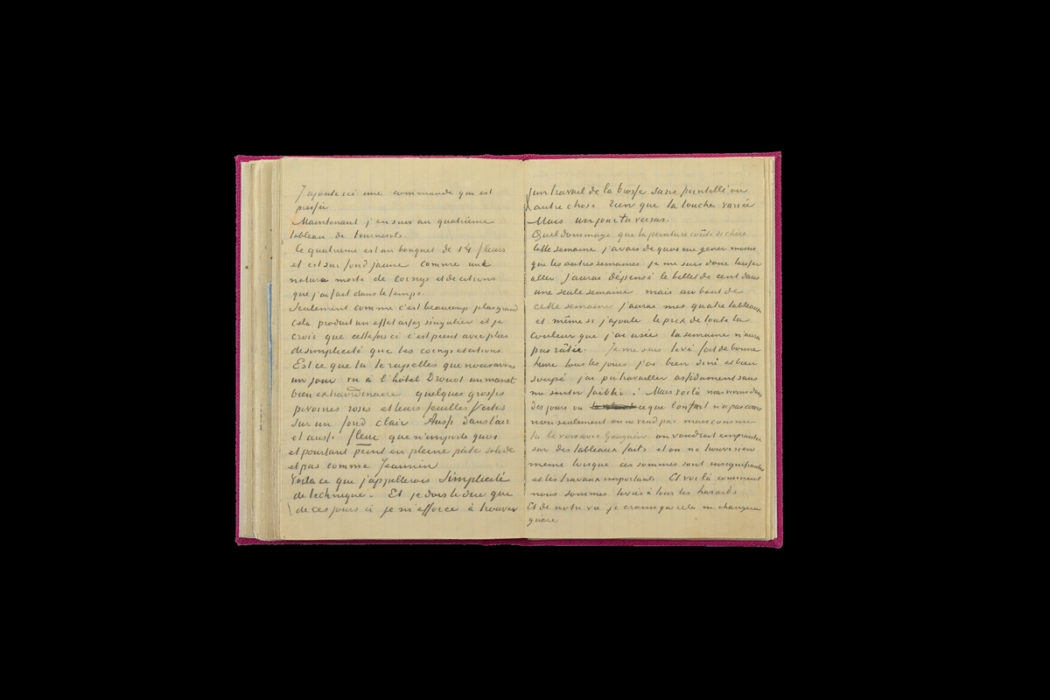 J'ajoute ici une commande qui est
Maintenant j'en suis au quatrième
tableau de tournesols.
Ce quatrième est un bouquet de 14 fleurs
et est sur fond jaune comme une
nature morte de coings et de citrons
que j'ai fait dans le temps.
Seulement comme c'est beaucoup plus grand
cela produit un effet assez singulier et je
crois que cette fois ci c'est peint avec plus
de simplicité que les coings et citrons.
Est ce que tu te rapelles que nous avons
un jour vu à l'hôtel Drouot un manet
bien extraordinaire quelques grosses
pivoines roses et leurs feuilles vertes
sur un fond clair. Aussi dans l'air
et aussi fleur que n'importe quoi
et pourtant peint en pleine pâte solide
et pas comme Jeannin
Voila ce que j'appellerais Simplicité
de technique. Et je dois te dire que
de ces jours ci je m'efforce à trouver
un travail de la brosse sans pointillé ou
autre chose rien que la touche variée
Mais un jour tu verras.
Quel dommage que la peinture coûte si chère
Cette semaine j'avais de quoi me gener moins
que les autres semaines je me suis donc laisser
aller j'aurai dépensé le billet de cent dans
une seule semaine mais au bout de
cette semaine j'aurai mes quatre tableaux
et même si j'ajoute le prix de toute la
couleur que j'ai usée la semaine n'aura
pas râtée Je me suis levé fort de bonne
heure tous les jours j'ai bien diné et bien
soupé j'ai pu travailler assidument sans
me sentir faiblir. Mais voilà nous vivons dans
des jours ou ce que l'on fait n'a pas cours
non seulement on ne vend pas mais comme
tu le vois avec Gauguin on voudrait emprunter
sur des tableaux faits et on ne trouve rien
meme lorsque ces sommes sont insignifiantes
et les travaux importants. Et voilà comment
nous sommes livrés à tous les hasards
Et de notre vie je crains que cela ne changera
guère